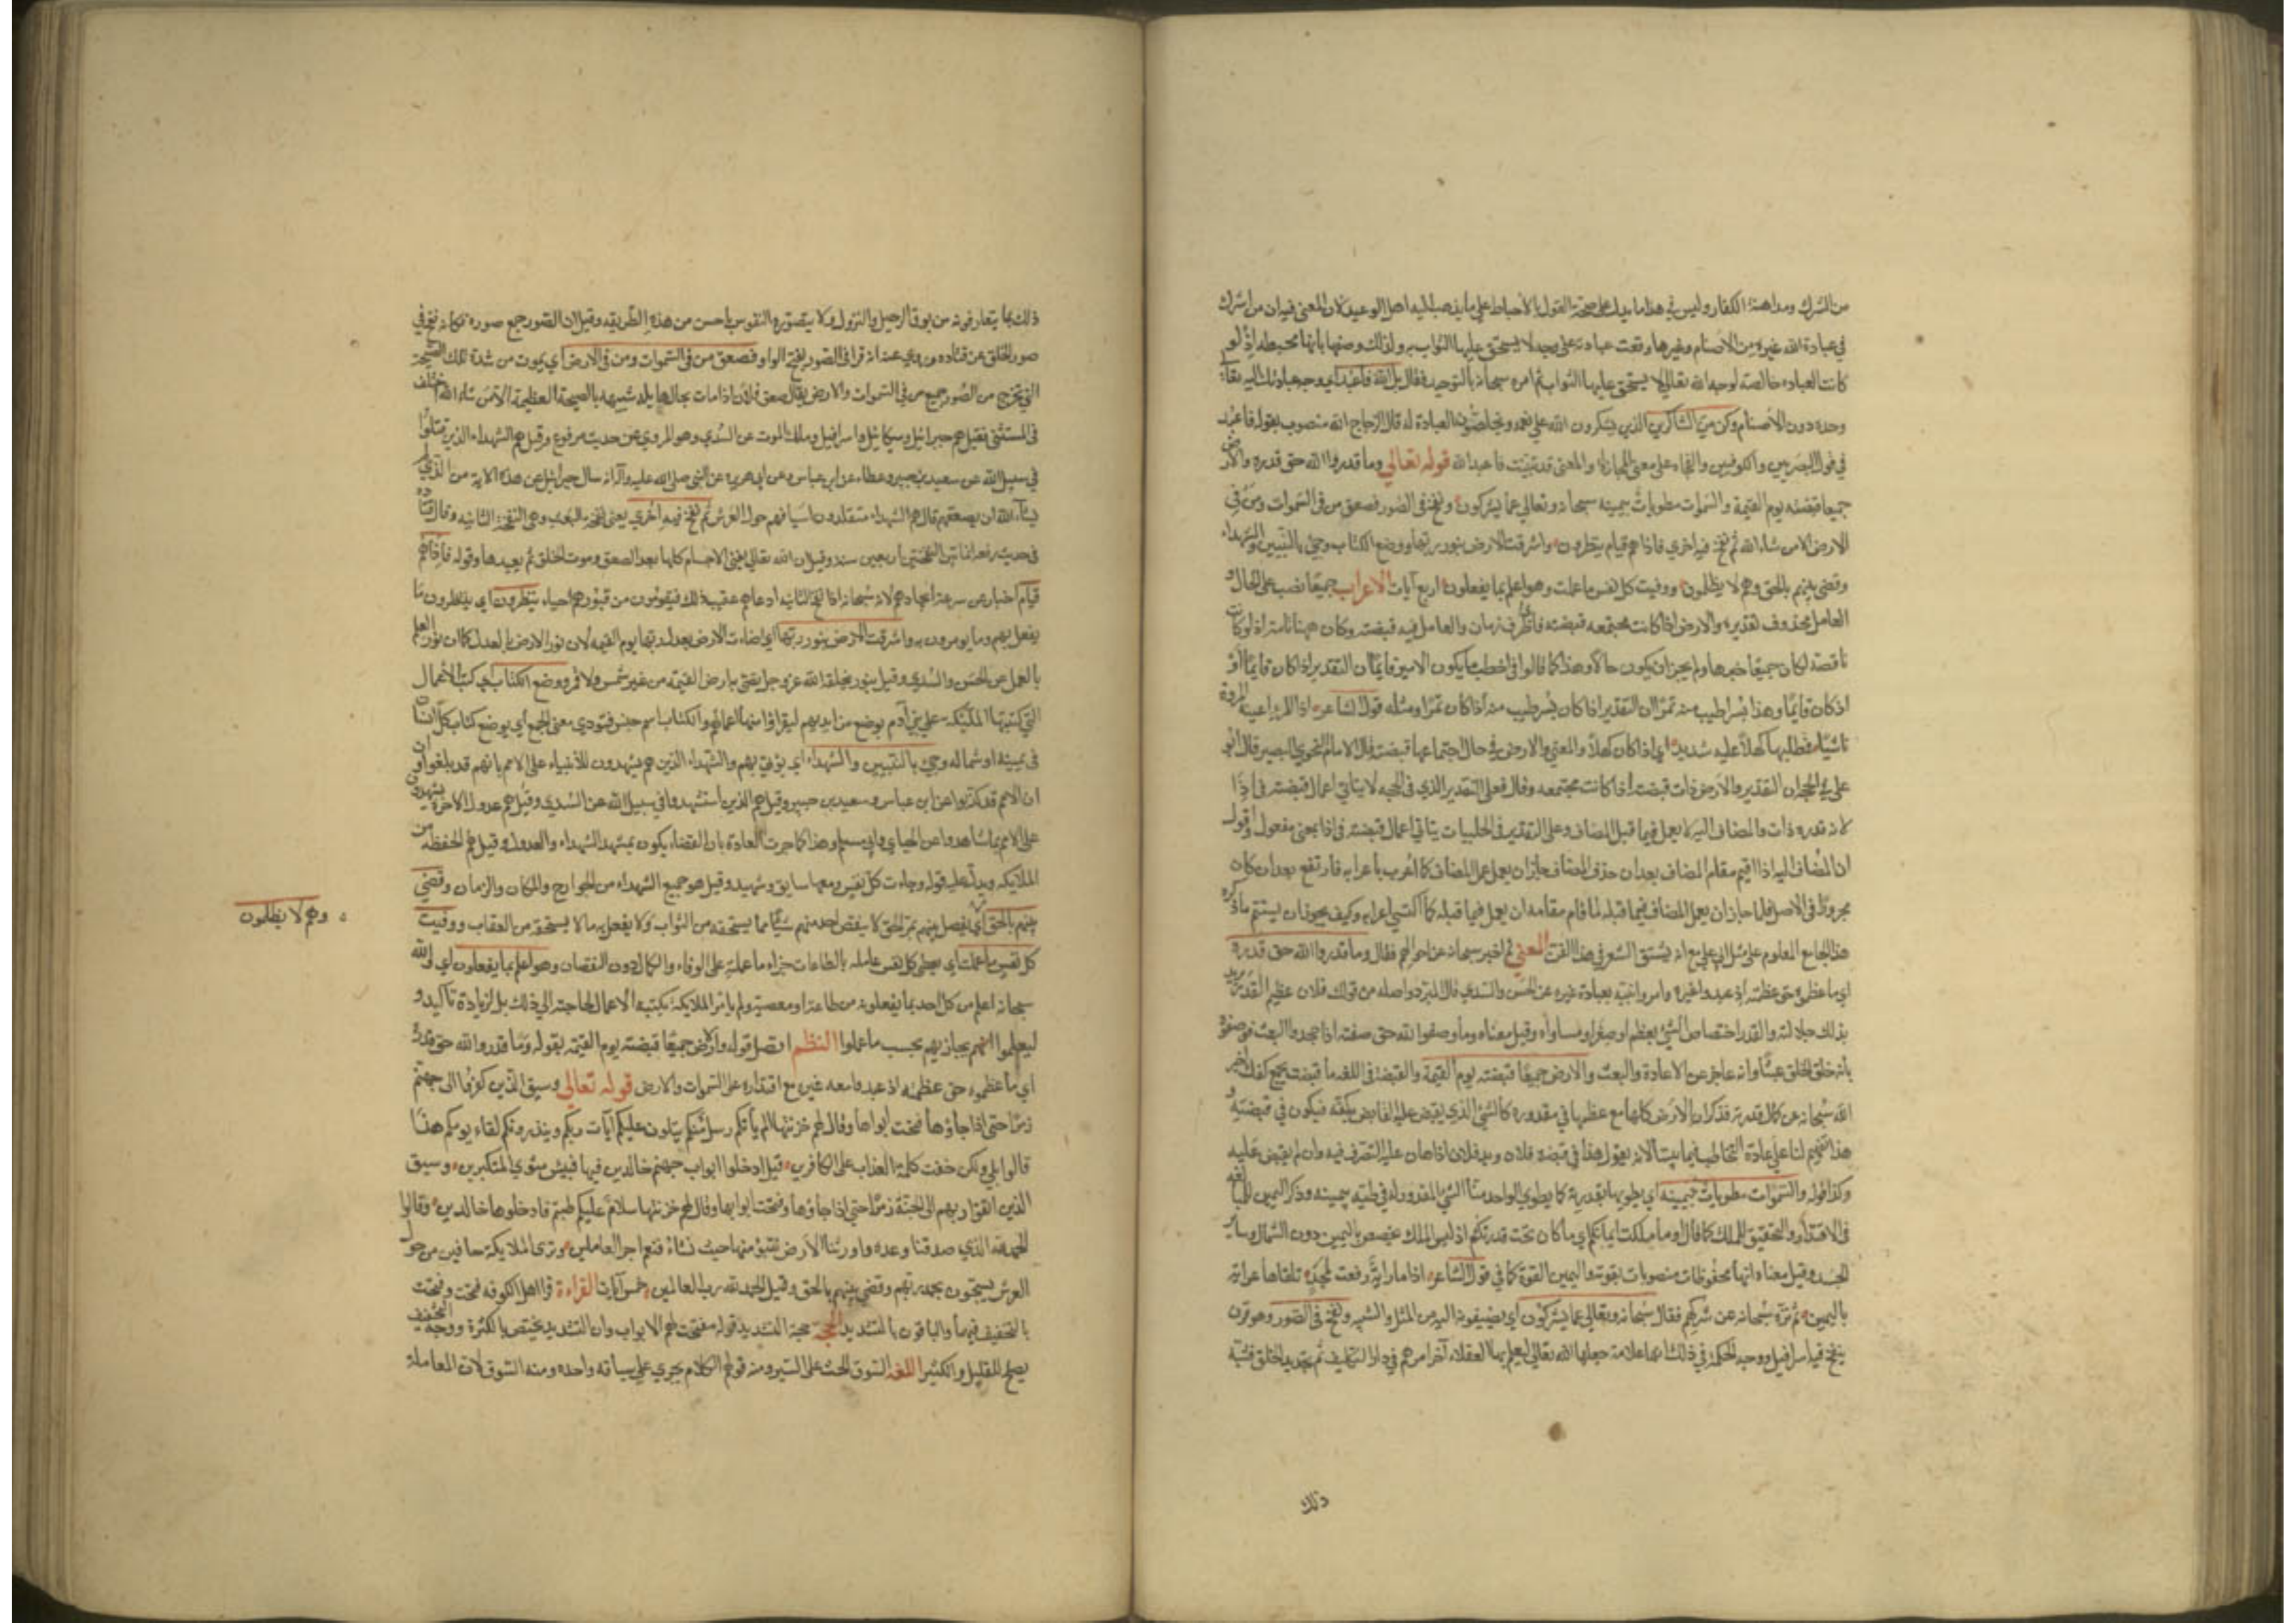 من الشرك ومداهنة الكفار وليس في هذا ما يدل على صحة القول بالاحباط على ما يذهب اليه اهل الوعيد لان المعنى فيه ان من اشرك
في عبادة الله غيره من الاصنام وغيرها وقعت عبادته على وجه لا يستحق عليها الثواب به ولذلك وصفها بانها محبطه اذ لو
كانت العباده خالصه لوجه الله تعالى لاستحق عليها الثواب ثم امره سبحانه بالتوحيد فقال بل الله فاعبد اي وجه عبادتك اليه تعالى
وحده دون الاصنام وكن من الشاكرين الذين يشكرون الله على نعمه ويخلصون العبادة له قال الزجاج الله منصوب بقوله فاعبد
في قول البصريين والكوفيين والفاء على معنى المجازاة والمعنى قد تبينت فاعبد الله قوله تعالى وما قدروا الله حق قدره والارض
جميعا قبضته يوم القيمة والسموات مطويات بيمينه سبحانه وتعالى عما يشركون ونفخ في الصور فصعق من في السموات ومن في
الارض الا من شاء الله ثم نفخ فيه اخرى فاذا هم قيام ينظرون واشرقت الارض بنور ربها ووضع الكتاب وجيء بالنبيين والشهداء
وقضى بينهم بالحق وهم لا يظلمون ووفيت كل نفس ما عملت وهو اعلم بما يفعلون اربع آيات الاعراب جميعا نصب على الحال و
العامل محذوف تقديره والارض اذا كانت مجتمعه قبضته فاذا ظرف زمان والعامل فيه قبضته وكان ههنا تامة اذ لو كانت
ناقصة لكان جميعا خبرها ولم يجز ان يكون حالا وهذا كما قالوا في اخطب ما يكون الامير قايما ان التقدير اذا كان قايما او
اذ كان قايما وهذا بسرا طيب منه تمرا ان التقدير اذا كان بسرا طيب منه اذا كان تمرا ومثله قول الشاعر اذا المرء اعيته المروة
ناشئا فمطلبها كهلا عليه شديد اي اذا كان كهلا والمعنى والارض في حال اجتماعها قبضته قال الامام النحوي البصير قال ابو
على في الحجة ان التقدير والارض ذات قبضته اذا كانت مجتمعه وقال فعلى التقدير الذي في الحجه لا يتاتى اعمال قبضته في اذا
لانه قدره ذات والمضاف اليه لا يعمل فيما قبل المضاف وعلى التقدير في الحلبيات يتاتى اعمال قبضته في اذا بمعنى مفعول واقول
ان المضاف اليه اذا اقيم مقام المضاف بعد ان حذف المضاف جاز ان يعمل عمل المضاف كما اعرب باعرابه فارتفع بعد ان كان
مجرورا في الاصل فلما جاز ان يعمل المضاف فيما قبله لما قام مقامه ان يعمل فيما قبله كما اكتسى اعرابه وكيف يجوز ان يستتم ما ذكره
هذا الجامع المعلوم على مثل ابي علي مع انه يشق الشعر في هذا الفن المعنى ثم اخبر سبحانه عن احوالهم فقال وما قدروا الله حق قدره
اي ما عظموه حق عظمته اذ عبدوا غيره وامروا نبيه بعبادة غيره عن الحسن والسدي قال المبرد واصله من قولك فلان عظيم القدر يريد
بذلك جلالته والقدر اختصاص الشيء بعظم او صغر او مساواه وقيل معناه وما وصفوا الله حق صفته اذ جحدوا البعث فوصفوه
بانه خلق الخلق عبثا وانه عاجز عن الاعادة والبعث والارض جميعا قبضته يوم القيمة والقبضة في اللغه ما قبضت بجمع كفك اخبر
الله سبحانه عن كمال قدرته فذكر ان الارض كلها مع عظمها في مقدوره كالشيء الذي يقبض عليه القابض بكفه فيكون في قبضته و
هذا تفهيم لنا على عادة التخاطب فيما بيننا لانا نقول هذا في قبضة فلان وبيد فلان اذا هان عليه التصرف فيه وان لم يقبض عليه
وكذا قوله والسموات مطويات بيمينه اي يطويها بقدرته كما يطوي الواحد منا الشيء المقدور له في طيه بيمينه وذكر اليمين للمبالغه
في الاقتدار والتحقيق للملك كما قال او ما ملكت ايمانكم اي ما كان تحت قدرتكم اذ ليس الملك يختص باليمين دون الشمال وساير
الجسد وقيل معناه انها محفوظات مصونات بقوته واليمين القوة كما في قول الشاعر اذا ما راية رفعت لمجد تلقاها عرابة
باليمين ثم نزه سبحانه عن شركهم فقال سبحانه وتعالى عما يشركون اي يضيفونه اليه من المثل والشبه ونفخ في الصور وهو قرن
ينفخ فيه اسرافيل ووجه الحكمة في ذلك انها علامة جعلها الله تعالى ليعلم بها العقلاء آخر امرهم في دار التكليف ثم تجديد الخلق فشبه
ذلك
ذلك بما يتعارفونه من بوق الرحيل والنزول ولا يتصوره النفوس باحسن من هذه الطريقه وقيل ان الصور جمع صوره فكانه نفخ في
صور الخلق عن قتاده وروي عنه انه قرا في الصور بفتح الواو فصعق من في السموات ومن في الارض اي يموت من شدة تلك الصيحة
التي تخرج من الصور جميع من في السموات والارض يقال صعق فلان اذا مات بحال هايله شبيهه بالصيحة العظيمة الا من شاء الله اختلف
في المستثنى فقيل هم جبرائيل وميكائيل واسرافيل وملك الموت عن السدي وهو المروي عن حديث مرفوع وقيل هم الشهداء الذين قتلوا
في سبيل الله عن سعيد بن جبير وعطاء عن ابن عباس وعن ابي هريره عن النبي صلى الله عليه وآله انه سال جبرائيل عن هذه الاية من الذي لم
يشاء الله ان يصعقهم قال هم الشهداء متقلدون اسيافهم حول العرش ثم نفخ فيه اخرى يعني نفخة البعث وهي النفخة الثانيه وقال قتاده
في حديث رفعه ان ما بين النفختين اربعين سنه وقيل ان الله تعالى يفني الاجسام كلها بعد الصعق وموت الخلق ثم يعيدها وقوله فاذا هم
قيام اخبار عن سرعة ايجادهم لانه سبحانه اذا نفخ الثانيه اعادهم عقيب ذلك فيقومون من قبورهم احياء ينظرون اي ينتظرون ما
يفعل بهم وما يومرون به واشرقت الارض بنور ربها اي اضاءت الارض بعدل ربها يوم القيمه لان نور الارض بالعدل كما ان نور العلم
بالعمل عن الحسن والسدي وقيل بنور يخلقه الله عز وجل يضئ به ارض القيمه من غير شمس ولا قمر ووضع الكتاب اي كتب الاعمال
التي كتبتها الملئكة على بني آدم يوضع في ايديهم ليقراوا منها اعمالهم والكتاب اسم جنس فيودي معنى الجمع اي يوضع كتاب كل انسان
في يمينه او شماله وجيء بالنبيين والشهداء اي يؤتى بهم والشهداء الذين هم يشهدون للانبياء على الامم بانهم قد بلغوا وان
ان الامم قد كذبوا عن ابن عباس وسعيد بن جبير وقيل هم الذين استشهدوا في سبيل الله عن السدي وقيل هم عدول الآخرة يشهدون
على الامم بما شاهدوا عن الجبائي وابي مسلم وهذا كما جرت العادة بان القضاء يكون بمشهد الشهداء والعدول وقيل هم الحفظه من
الملايكه ويدل عليه قوله وجاءت كل نفس معها سايق وشهيد وقيل هو جميع الشهداء من الجوارح والمكان والزمان وقضي
بينهم بالحق اي يفصل بينهم بمر الحق لا ينقص احد منهم شيئا مما يستحقه من الثواب ولا يفعل به ما لا يستحقه من العقاب ووفيت
وهم لا يظلمون
كل نفس ما عملت اي يعطى كل نفس عامله بالطاعات جزاء ما عملته على الوفاء والكمال دون النقصان وهو اعلم بما يفعلون اي والله
سبحانه اعلم من كل احد بما يفعلونه من طاعة او معصية ولم يامر الملايكة بكتبه الاعمال لحاجته الى ذلك بل لزيادة تاكيد و
ليعلموا انهم يجازيهم بحسب ما عملوا النظم اتصل قوله والارض جميعا قبضته يوم القيمة بقوله وما قدروا الله حق قدره
اي ما عظموه حق عظمته اذ عبدوا معه غيره مع اقتداره على السموات والارض قوله تعالى وسيق الذين كفروا الى جهنم
زمرا حتى اذا جاؤها فتحت ابوابها وقال لهم خزنتها الم يأتكم رسل منكم يتلون عليكم آيات ربكم وينذرونكم لقاء يومكم هذا
قالوا بلى ولكن حقت كلمة العذاب على الكافرين قيل ادخلوا ابواب جهنم خالدين فيها فبئس مثوى المتكبرين وسيق
الذين اتقوا ربهم الى الجنة زمرا حتى اذا جاؤها وفتحت ابوابها وقال لهم خزنتها سلام عليكم طبتم فادخلوها خالدين وقالوا
الحمد لله الذي صدقنا وعده واورثنا الارض نتبوؤ منها حيث نشاء فنعم اجر العاملين وترى الملايكة حافين من حول
العرش يسبحون بحمد ربهم وقضى بينهم بالحق وقيل الحمد لله رب العالمين خمس آيات القراءة قرا اهل الكوفه فتحت وفتحت
بالتخفيف فيهما والباقون بالتشديد الحجة حجة التشديد قوله مفتحة لهم الابواب وان التشديد يختص بالكثرة ووجه التخفيف
يصلح للقليل والكثير اللغه السوق الحث على السير ومنه قولهم الكلام يجري على سياقه واحده ومنه السوق لان المعاملة